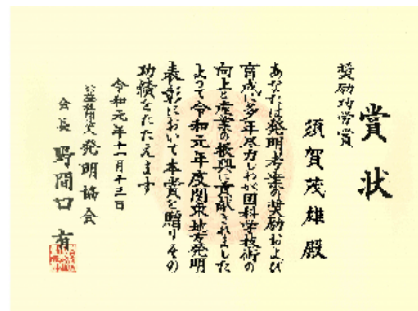 賞状
奨励功労賞
須賀茂雄殿
あなたは発明考案の奨励および
育成に多年尽力しわが国科学技術の
向上と産業の振興に貢献されました
よって令和元年度関東地方発明
表彰において本賞を贈りその
功績をたたえます
令和元年十一月十三日
公益社団法人発明協会
会長 野間口有